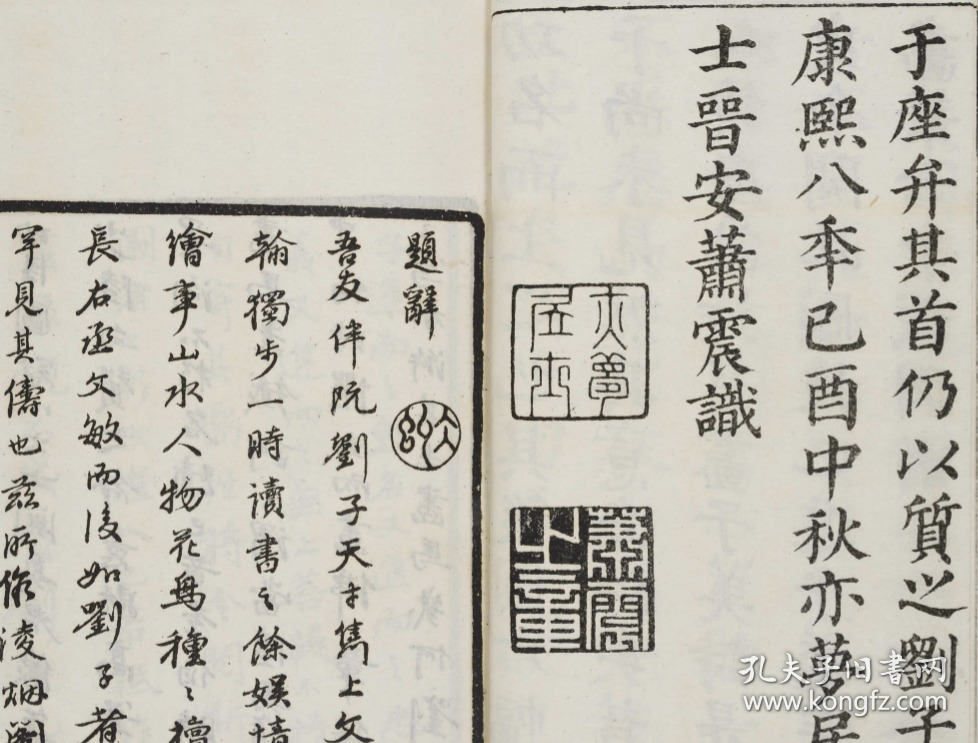 于座弁其首仍以質之劉子
康熙八秊己酉中秋亦夢居
士晉安蕭震識
亦夢居士
蕭震之章
題辭
吾友伴阮劉子天才雋上文
翰獨步一時讀書〻餘娱情
繪事山水人物花鳥種〻擅
長右丞文敏而後如劉子者
罕見其儔也茲所倣淩烟閣
孔夫子旧书网
www.kongfz.com